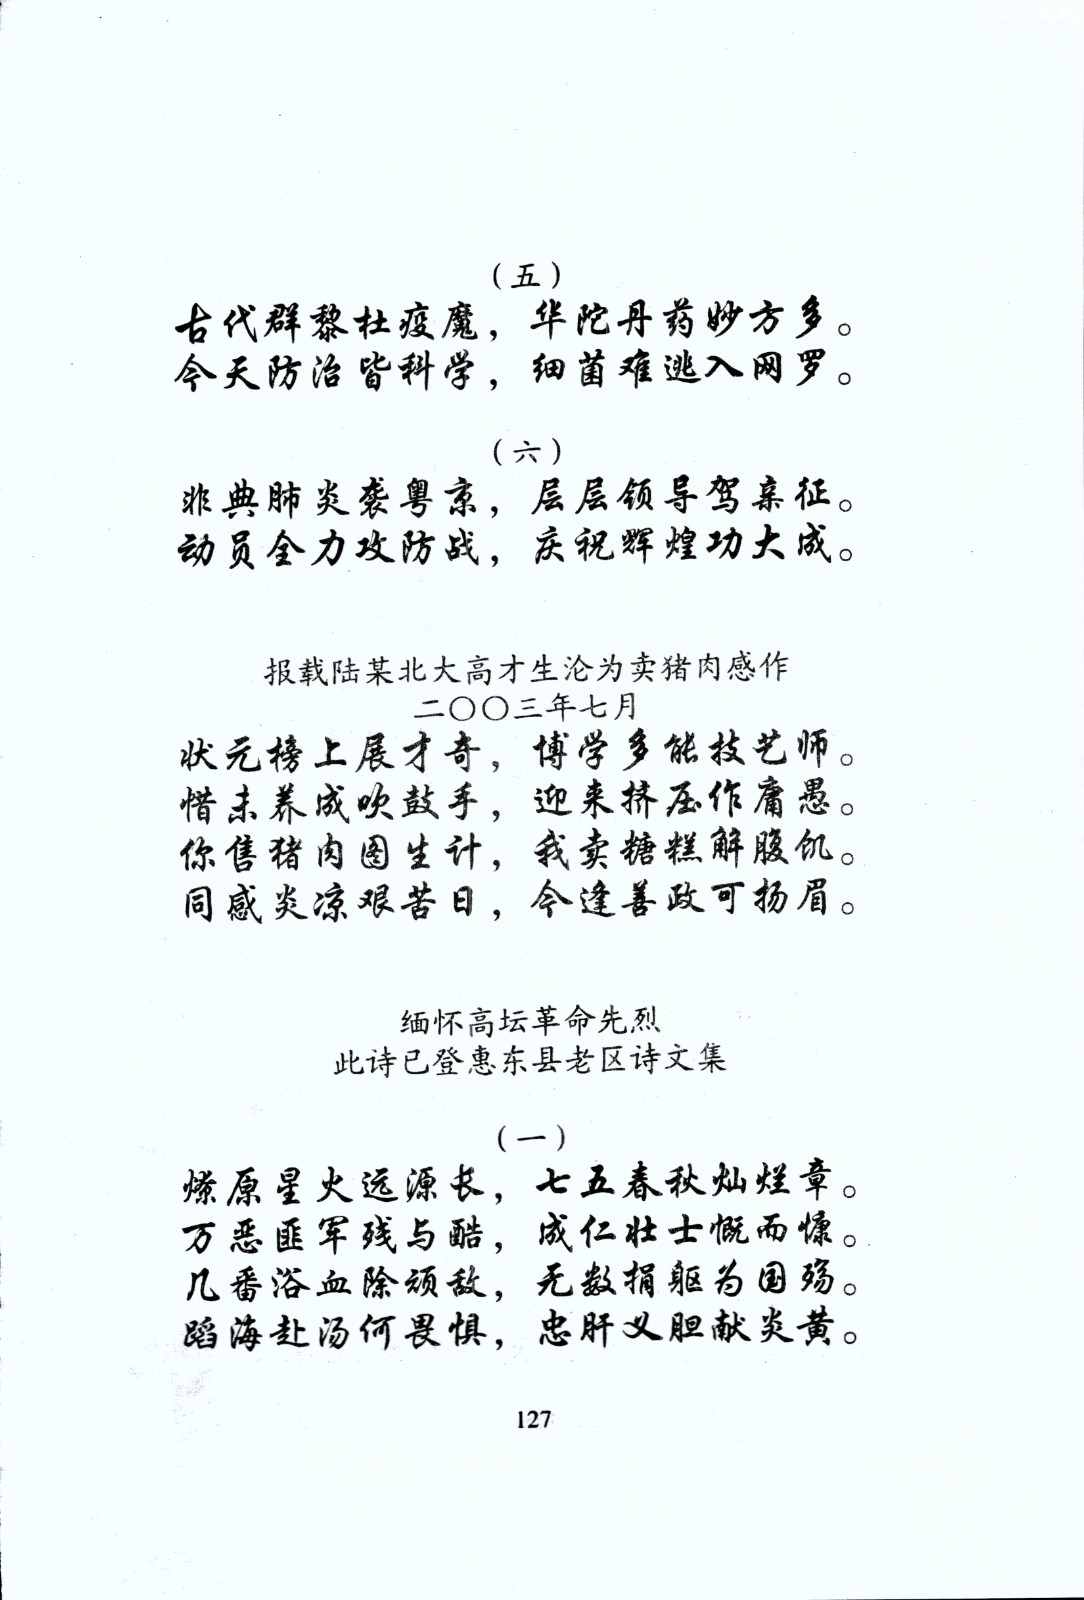 （五）
古代群黎杜疫魔，华陀丹药妙方多。
今天防治皆科学，细菌难逃入网罗。
（六）
非典肺炎袭粤京，层层领导驾亲征。
动员全力攻防战，庆祝辉煌功大成。
报载陆某北大高才生沦为卖猪肉感作
二〇〇三年七月
状元榜上展才奇，博学多能技艺师。
惜未养成吹鼓手，迎来挤压作庸愚。
你售猪肉图生计，我卖糖糕解腹饥。
同感炎凉艰苦日，今逢善政可扬眉。
缅怀高坛革命先烈
此诗已登惠东县老区诗文集
（一）
燎原星火远源长，七五春秋灿烂章。
万恶匪军残与酷，成仁壮士慨而慷。
几番浴血除顽敌，无数捐躯为国殇。
蹈海赴汤何畏惧，忠肝义胆献炎黄。
127